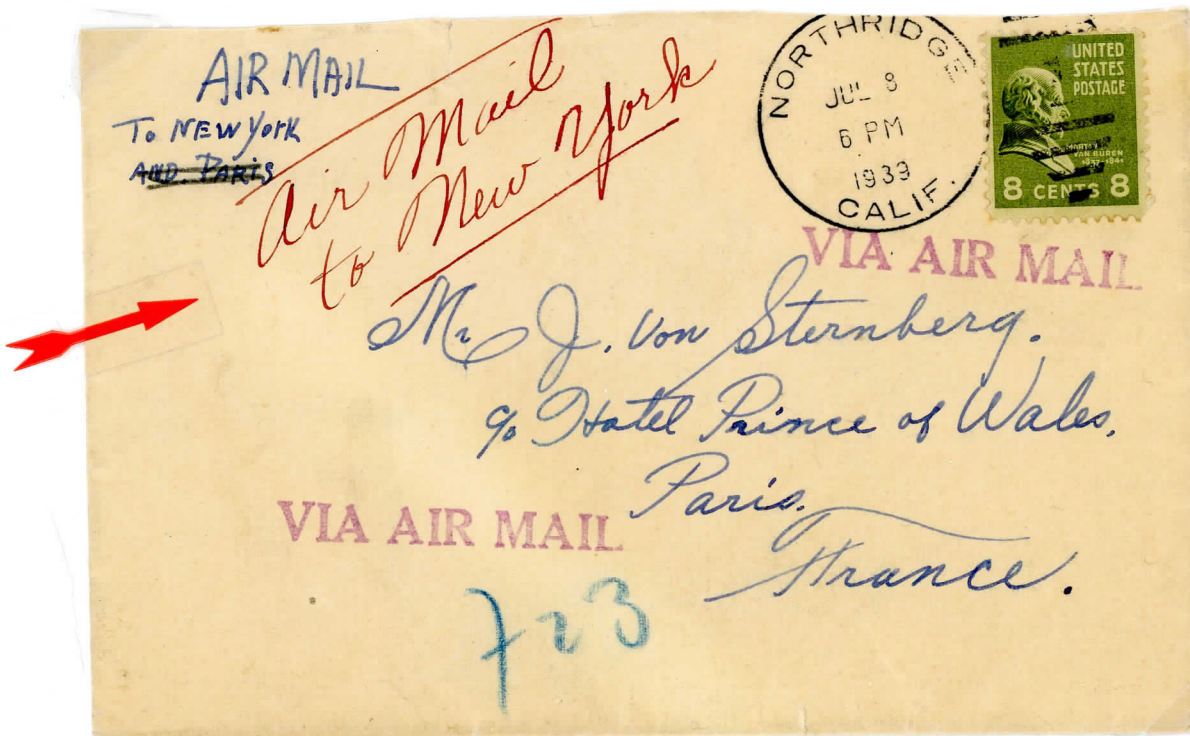 AIR MAIL
TO NEW YORK
AND PARIS
Air Mail
to New York
NORTHRIDGE
JUL 8
6 PM
1939
CALIF.
UNITED
STATES
POSTAGE
MARTIN
VAN BUREN
1837-1841
8 CENTS 8
VIA AIR MAIL
Mr J. Von Sternberg.
c/o Hotel Prince of Wales,
Paris.
France.
VIA AIR MAIL
723